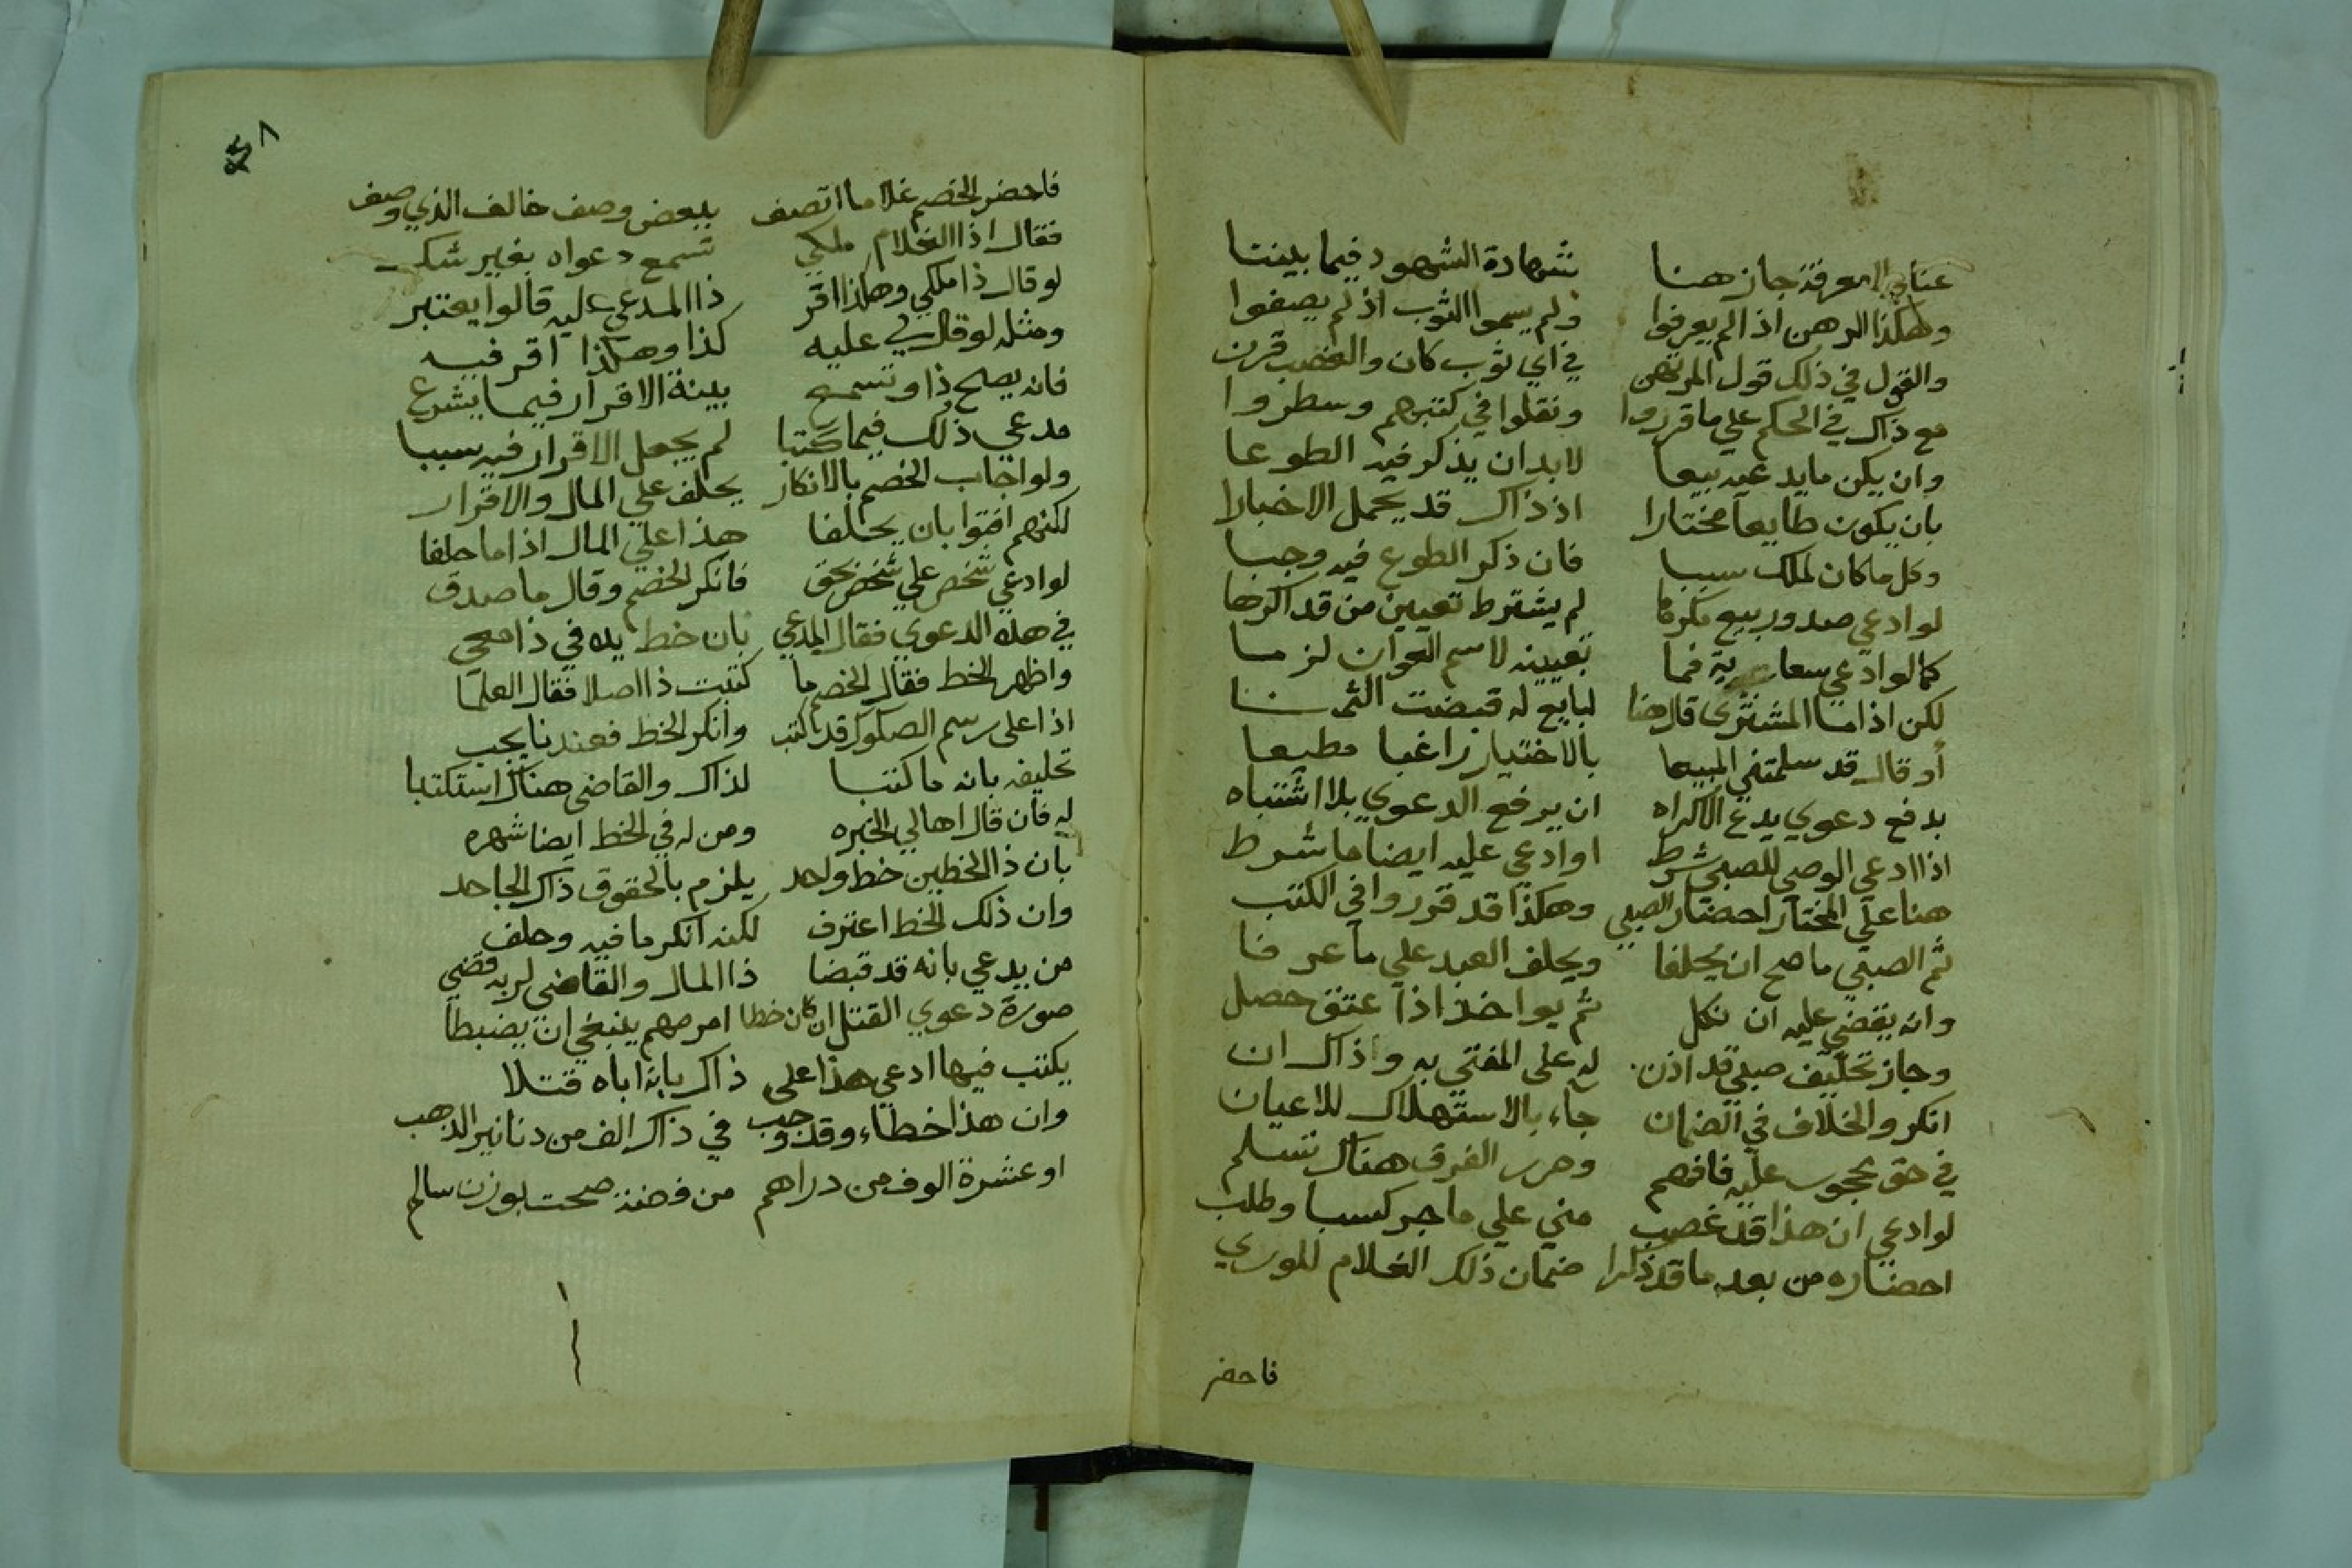 جاز هنا شهادة الشهود فيما بيننا
وهكذا الرهن اذا لم يعرفوا ولم يسموا الثوب اذ لم يصفوا
والقول في ذلك قول المرتهن في اي ثوب كان والغصب قرن
مع ذاك في الحكم علي ما قرروا ونقلوا في كتبهم وسطروا
وان يكن ما يدعيه بيعا لا بد ان يذكر فيه الطوعا
بان يكون طايعا مختارا اذ ذاك قد يحمل الاخبارا
وكل ما كان لملك سببا فان ذكر الطوع فيه وجبا
لو ادعي صدور بيع مكرها لم يشترط تعيين من قد اكرها
كما لو ادعي سعاية فما تعيينه لاسم العوان لزما
لكن اذا ما المشتري قال هنا لبايع له قبضت الثمنا
أو قال قد سلمتني المبيعا بالاختيار راغبا مطيعا
بدفع دعوي يدع الاكراه ان يرفع الدعوي بلا اشتباه
اذا ادعي الوصي للصبي شرط او ادعي عليه ايضا ما شرط
هنا علي المختار احضار الصبي وهكذا قد قرروا في الكتب
ثم الصبي ما صح ان يحلفا ويحلف العبد علي ما عرفا
وانه يقضي عليه ان نكل ثم يواخذ اذا عتق حصل
وجاز تحليف صبي قد اذن له علي المفتي به وذاك ان
انكر والخلاف في الضمان جاء بالاستهلاك للاعيان
في حق محجور عليه فافهم وحرر الفرق هناك تسلم
لو ادعي ان هذا قد غصب مني علي ما جر كسبا وطلب
احضاره من بعد ما قد ذكرا ضمان ذلك الغلام للوري
فاحضر
٤٨
فاحضر الخصم غلاما اتصف ببعض وصف خالف الذي وصف
فقال اذا الغلام ملكي تسمع دعواه بغير شك
لو قال ذا ملكي وهكذا اقر ذا المدعي عليه قالوا يعتبر
ومثله لو قال لي عليه كذا وهكذا اقر فيه
فانه يصلح ذا وتسمع بينة الاقرار فيما يشرع
مدعي ذلك فيما كتبا لم يجعل الاقرار فيه سببا
ولو اجاب الخصم بالانكار يحلف علي المال والاقرار
لكنهم افتوا بان يحلفا هذا علي المال اذا ما حلفا
لو ادعي شخص علي شخص بحق فانكر الخصم وقال ما صدق
في هذه الدعوي فقال المدعي بان خط يده في ذا معي
واظهر الخط فقال الخصم ما كتبت ذا اصلا فقال العلما
اذا علي رسم الصكوك قد كتب وانكر الخط فعندنا يجب
تحليفه بانه ما كتبا لذاك والقاضي هناك استكتبا
له فان قال اهالي الخبره ومن له في الخط ايضا شهره
بان ذا الخطين خط واحد يلزم بالحقوق ذاك الجاحد
وان ذلك الخط اعترف لكنه انكر ما فيه وحلف
من يدعي بانه قد قبضا ذا المال والقاضي له به قضي
صورة دعوي القتل ان كان خطا امر مهم ينبغي ان يضبطا
يكتب فيها ادعي هذا علي ذاك بانه اباه قتلا
وان هذا خطاء وقد وجب في ذاك الف من دنانير الذهب
او عشرة الوف من دراهم من فضة صحت بوزن سالم